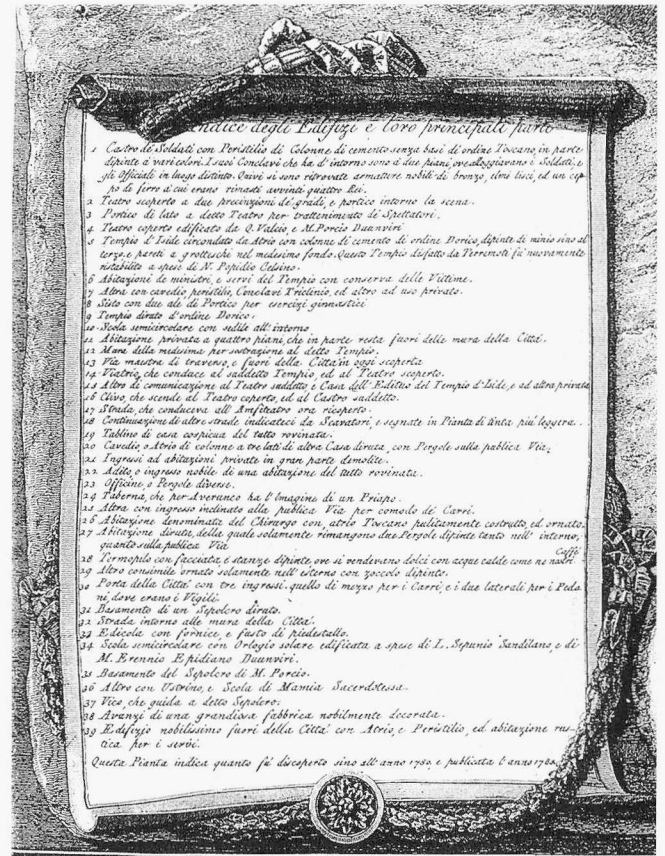 Indice degli Edifizi e loro principali parti
1 Castro de Soldati con Peristilio di Colonne di cemento senza basi di ordine Toscano, in parte
dipinte à vari colori. I suoi Conclavi che ha d'intorno sono à due piani, ove alloggiavano i Soldati, e
gli Officiali in luogo distinto. Quivi si sono ritrovate armature nobili di bronzo, elmi lisci, ed un cip-
po di ferro à cui erano rimasti avvinti quattro Rei.
2 Teatro scoperto a due precinzioni de' gradi, e portico intorno la scena.
3 Portico di lato a detto Teatro per trattenimento de' Spettatori.
4 Teatro coperto edificato da Q. Valcio, e M. Porcio Duunviri
5 Tempio d'Iside circondato da Atrio con colonne di cemento di ordine Dorico, dipinte di minio sino al
terzo, e pareti a grotteschi nel medesimo fondo. Questo Tempio disfatto da Terremoti fù nuovamente
ristabilito a spese di N. Popidio Celsino.
6 Abitazioni de ministri, e servi del Tempio con conserva delle Vittime.
7 Altra con cavedio, peristilij, Conclavi Triclinio, ed altro ad uso privato.
8 Sisto con due ale di Portico per esercizi ginnastici
9 Tempio diruto d'ordine Dorico.
10 Scola semicircolare con sedile all'intorno
11 Abitazione privata a quattro piani, che in parte resta fuori delle mura della Città.
12 Mura della medesima per sostruzione al detto Tempio.
13 Via maestra di traverso, e fuori della Città in oggi scoperta
14 Viatrio, che conduce al suddetto Tempio, ed al Teatro scoperto.
15 Altro di comunicazione al Teatro suddetto, e Casa dell'Edituo del Tempio d'Iside, e ad altra privata
16 Clivo, che scende al Teatro coperto, ed al Castro suddetto.
17 Strada, che conduceva all'Amfiteatro ora ricoperto.
18 Continuazione di altre strade indicateci da Scavatori, e segnate in Pianta di tinta più leggera.
19 Tablino di casa cospicua del tutto rovinata.
20 Cavedio, o Atrio di colonne a tre lati di altra Casa diruta, con Pergole sulla publica Via.
21 Ingressi ad abitazioni private in gran parte demolite.
22 Adito, o ingresso nobile di una abitazione del tutto rovinata.
23 Officine, o Pergole diverse.
24 Taberna, che per Averunco ha l'Imagine di un Priapo.
25 Altra con ingresso inclinato alla publica Via per comodo de' Carri.
26 Abitazione denominata del Chirurgo con atrio Toscano pulitamente costrutto, ed ornato.
27 Abitazione diruta, della quale solamente rimangono due Pergole dipinte tanto nell'interno,
quanto sulla publica Via
28 Termopilo con facciata, e stanze dipinte, ove si vendevano dolci con acque calde come ne nostri Caffè
29 Altro consimile ornato solamente nell'esterno con zoccolo dipinto.
30 Porta della Città con tre ingressi. quello di mezzo per i Carri, e i due laterali per i Pedo-
ni, dove erano i Vigili
31 Basamento di un Sepolcro diruto.
32 Strada intorno alle mura della Città.
33 Edicola con fornice, e fusto di piedestallo.
34 Scola semicircolare con Orlogio solare edificata a spese di L. Sepunio Sandilano, e di
M. Erennio Epidiano Duunviri.
35 Basamento del Sepolcro di M. Porcio.
36 Altro con Ustrino, e Scola di Mamia Sacerdotessa.
37 Vico, che guida a detto Sepolcro.
38 Avanzi di una grandiosa fabbrica nobilmente decorata.
39 Edifizio nobilissimo fuori della Città con Atrio, e Peristilio, ed abitazione rus-
tica per i servi.
Questa Pianta indica quanto fù discoperto sino all'anno 1789, e publicata l'anno